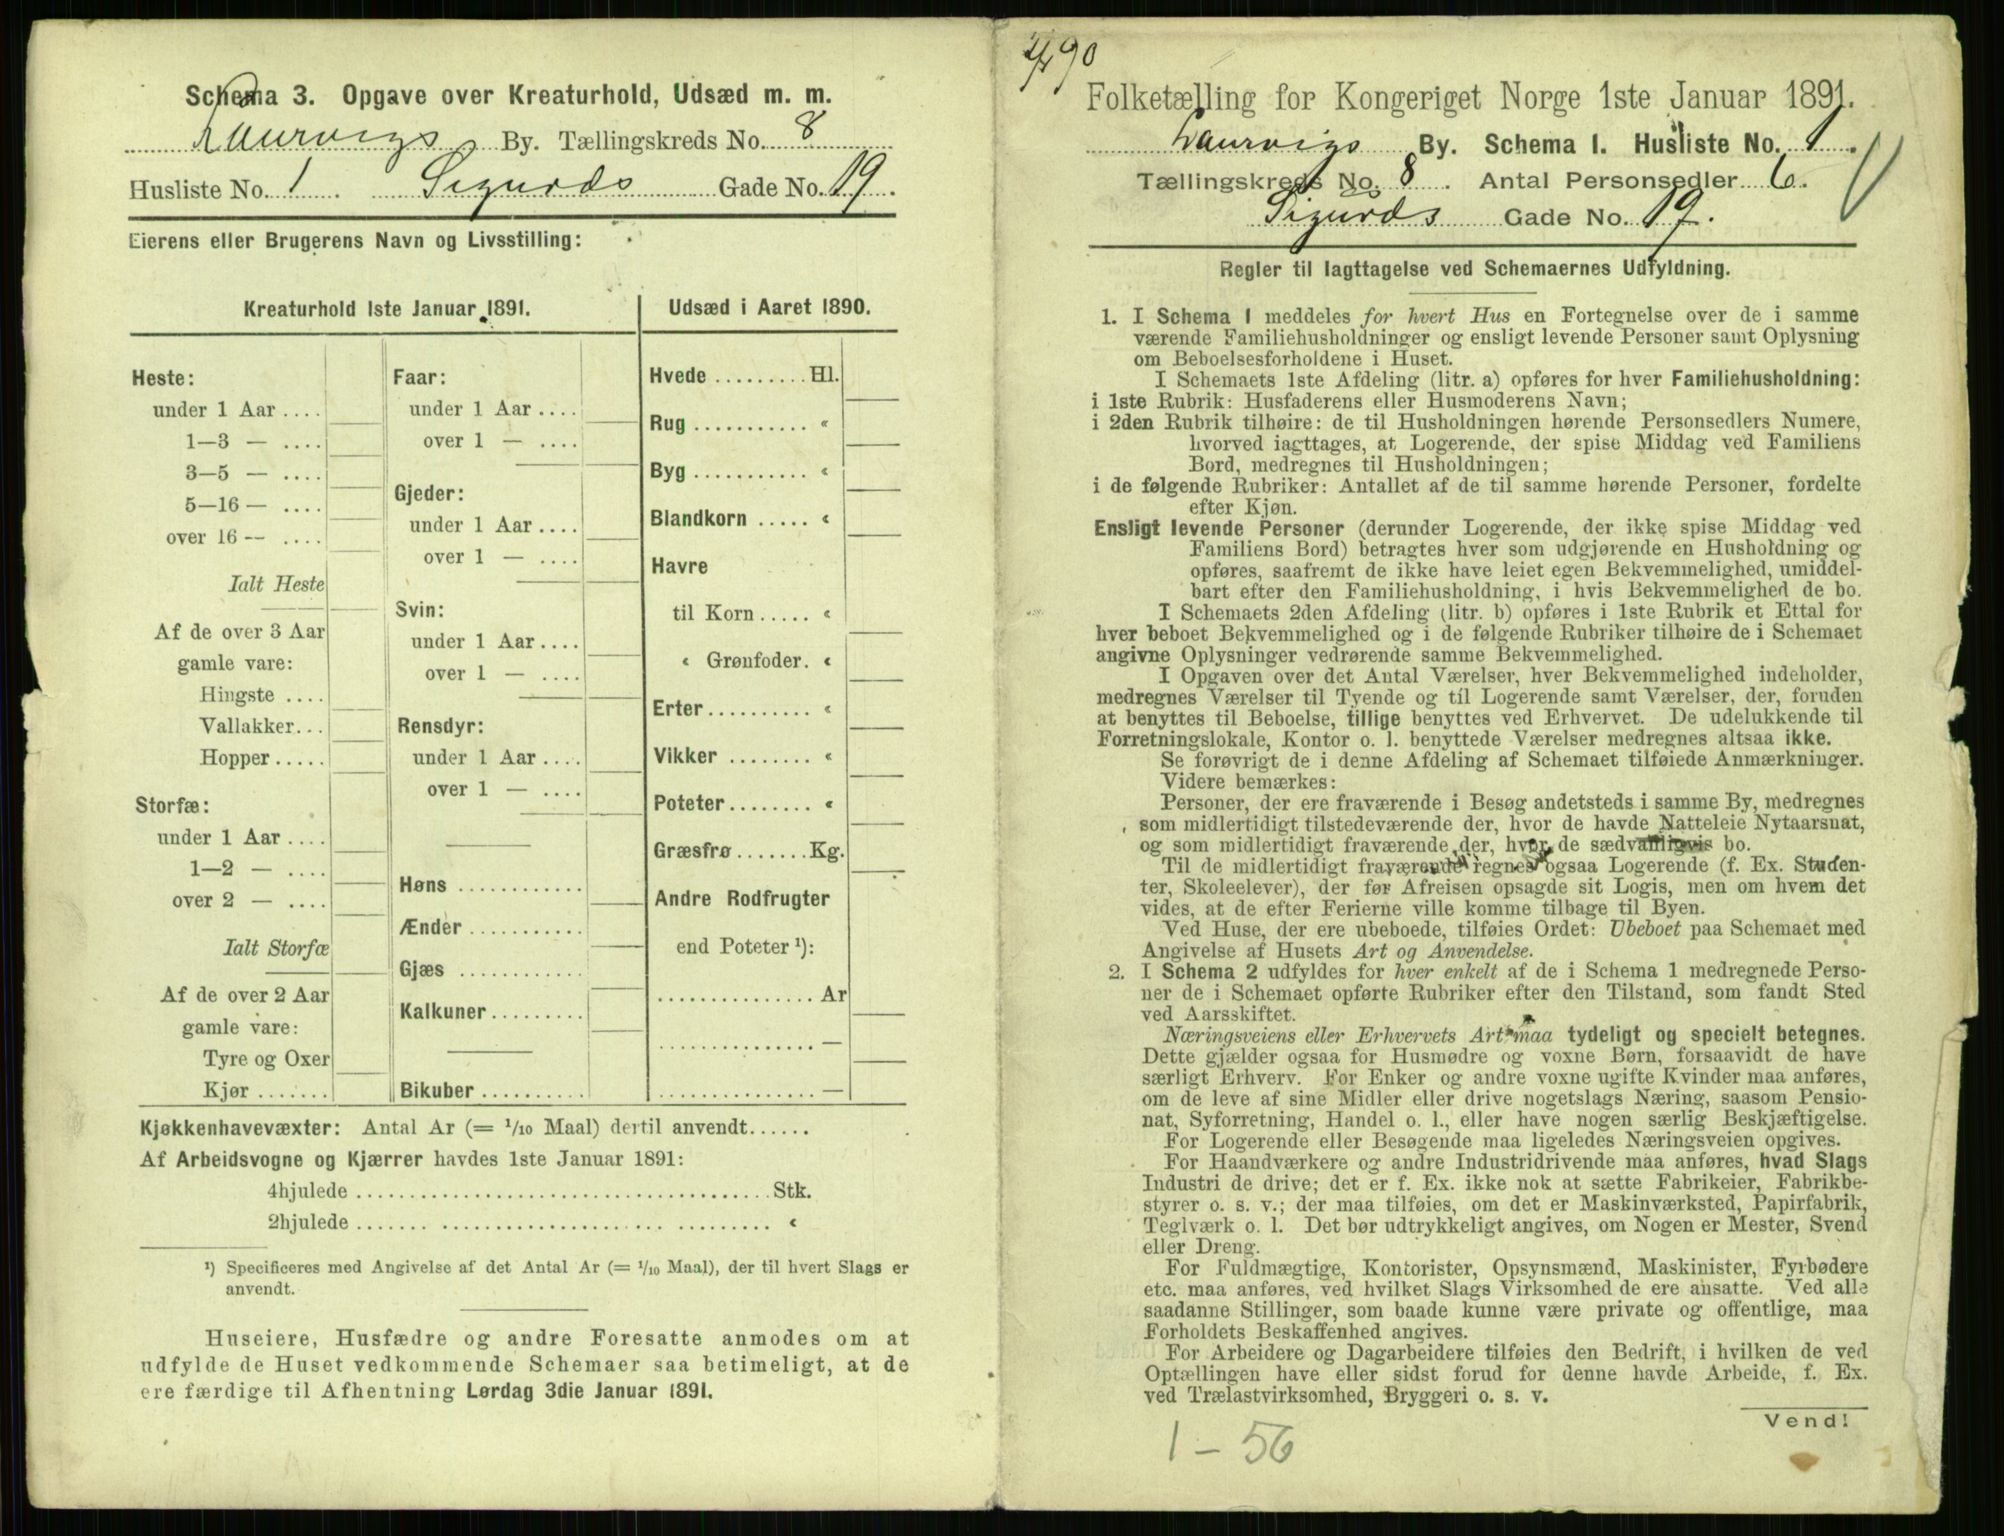 Schema 3. Opgave over Kreaturhold, Udsæd m. m.
Laurvigs By. Tællingskreds No. 8
Husliste No. 1 Sigurds Gade No. 19.
Eierens eller Brugerens Navn og Livsstilling:
Kreaturhold 1ste Januar 1891.
Heste:
under 1 Aar ....
1—3 — ....
3—5 — ....
5—16 — ....
over 16 — ....
Ialt Heste
Af de over 3 Aar
gamle vare:
Hingste ....
Vallakker...
Hopper .....
Storfæ:
under 1 Aar ....
1—2 — ....
over 2 — ....
Ialt Storfæ
Af de over 2 Aar
gamle vare:
Tyre og Oxer
Kjør .......
Faar:
under 1 Aar ....
over 1 — ....
Gjeder:
under 1 Aar ....
over 1 — ....
Svin:
under 1 Aar ....
over 1 — ....
Rensdyr:
under 1 Aar ....
over 1 — ....
Høns ...........
Ænder ...........
Gjæs ...........
Kalkuner.........
Bikuber ..........
Udsæd i Aaret 1890.
Hvede .........Hl.
Rug ........... «
Byg ........... «
Blandkorn ..... «
Havre
til Korn ..... «
« Grønfoder. «
Erter.......... «
Vikker ........ «
Poteter........ «
Græsfrø .......Kg.
Andre Rodfrugter
end Poteter ¹):
............... Ar
............... —
............... —
Kjøkkenhavevæxter: Antal Ar (= 1/10 Maal) dertil anvendt......
Af Arbeidsvogne og Kjærrer havdes 1ste Januar 1891:
4hjulede ........................................ Stk.
2hjulede ........................................ «
¹) Specificeres med Angivelse af det Antal Ar (= 1/10 Maal), der til hvert Slags er
anvendt.
Huseiere, Husfædre og andre Foresatte anmodes om at
udfylde de Huset vedkommende Schemaer saa betimeligt, at de
ere færdige til Afhentning Lørdag 3die Januar 1891.
Folketælling for Kongeriget Norge 1ste Januar 1891.
Laurvigs By. Schema 1. Husliste No. 1.
Tællingskreds No. 8. Antal Personsedler 6.
Sigurds Gade No. 19.
Regler til Iagttagelse ved Schemaernes Udfyldning.
1. I Schema 1 meddeles for hvert Hus en Fortegnelse over de i samme
værende Familiehusholdninger og ensligt levende Personer samt Oplysning
om Beboelsesforholdene i Huset.
I Schemaets 1ste Afdeling (litr. a) opføres for hver Familiehusholdning:
i 1ste Rubrik: Husfaderens eller Husmoderens Navn;
i 2den Rubrik tilhøire: de til Husholdningen hørende Personsedlers Numere,
hvorved iagttages, at Logerende, der spise Middag ved Familiens
Bord, medregnes til Husholdningen;
i de følgende Rubriker: Antallet af de til samme hørende Personer, fordelte
efter Kjøn.
Ensligt levende Personer (derunder Logerende, der ikke spise Middag ved
Familiens Bord) betragtes hver som udgjørende en Husholdning og
opføres, saafremt de ikke have leiet egen Bekvemmelighed, umiddel-
bart efter den Familiehusholdning, i hvis Bekvemmelighed de bo.
I Schemaets 2den Afdeling (litr. b) opføres i 1ste Rubrik et Ettal for
hver beboet Bekvemmelighed og i de følgende Rubriker tilhøire de i Schemaet
angivne Oplysninger vedrørende samme Bekvemmelighed.
I Opgaven over det Antal Værelser, hver Bekvemmelighed indeholder,
medregnes Værelser til Tyende og til Logerende samt Værelser, der, foruden
at benyttes til Beboelse, tillige benyttes ved Erhvervet. De udelukkende til
Forretningslokale, Kontor o. l. benyttede Værelser medregnes altsaa ikke.
Se forøvrigt de i denne Afdeling af Schemaet tilføiede Anmærkninger.
Videre bemærkes:
Personer, der ere fraværende i Besøg andetsteds i samme By, medregnes
som midlertidigt tilstedeværende der, hvor de havde Natteleie Nytaarsnat,
og som midlertidigt fraværende der, hvor de sædvanligvis bo.
Til de midlertidigt fraværende regnes ogsaa Logerende (f. Ex. Studen-
ter, Skoleelever), der før Afreisen opsagde sit Logis, men om hvem det
vides, at de efter Ferierne ville komme tilbage til Byen.
Ved Huse, der ere ubeboede, tilføies Ordet: Ubeboet paa Schemaet med
Angivelse af Husets Art og Anvendelse.
2. I Schema 2 udfyldes for hver enkelt af de i Schema 1 medregnede Perso-
ner de i Schemaet opførte Rubriker efter den Tilstand, som fandt Sted
ved Aarsskiftet.
Næringsveiens eller Erhvervets Art maa tydeligt og specielt betegnes.
Dette gjælder ogsaa for Husmødre og voxne Børn, forsaavidt de have
særligt Erhverv. For Enker og andre voxne ugifte Kvinder maa anføres,
om de leve af sine Midler eller drive nogetslags Næring, saasom Pensio-
nat, Syforretning, Handel o. l., eller have nogen særlig Beskjæftigelse.
For Logerende eller Besøgende maa ligeledes Næringsveien opgives.
For Haandværkere og andre Industridrivende maa anføres, hvad Slags
Industri de drive; det er f. Ex. ikke nok at sætte Fabrikeier, Fabrikbe-
styrer o. s. v.; der maa tilføies, om det er Maskinværksted, Papirfabrik,
Teglværk o. l. Det bør udtrykkeligt angives, om Nogen er Mester, Svend
eller Dreng.
For Fuldmægtige, Kontorister, Opsynsmænd, Maskinister, Fyrbødere
etc. maa anføres, ved hvilket Slags Virksomhed de ere ansatte. Ved alle
saadanne Stillinger, som baade kunne være private og offentlige, maa
Forholdets Beskaffenhed angives.
For Arbeidere og Dagarbeidere tilføies den Bedrift, i hvilken de ved
Optællingen have eller sidst forud for denne havde Arbeide, f. Ex.
ved Trælastvirksomhed, Bryggeri o. s. v.
Vend!
1 - 56